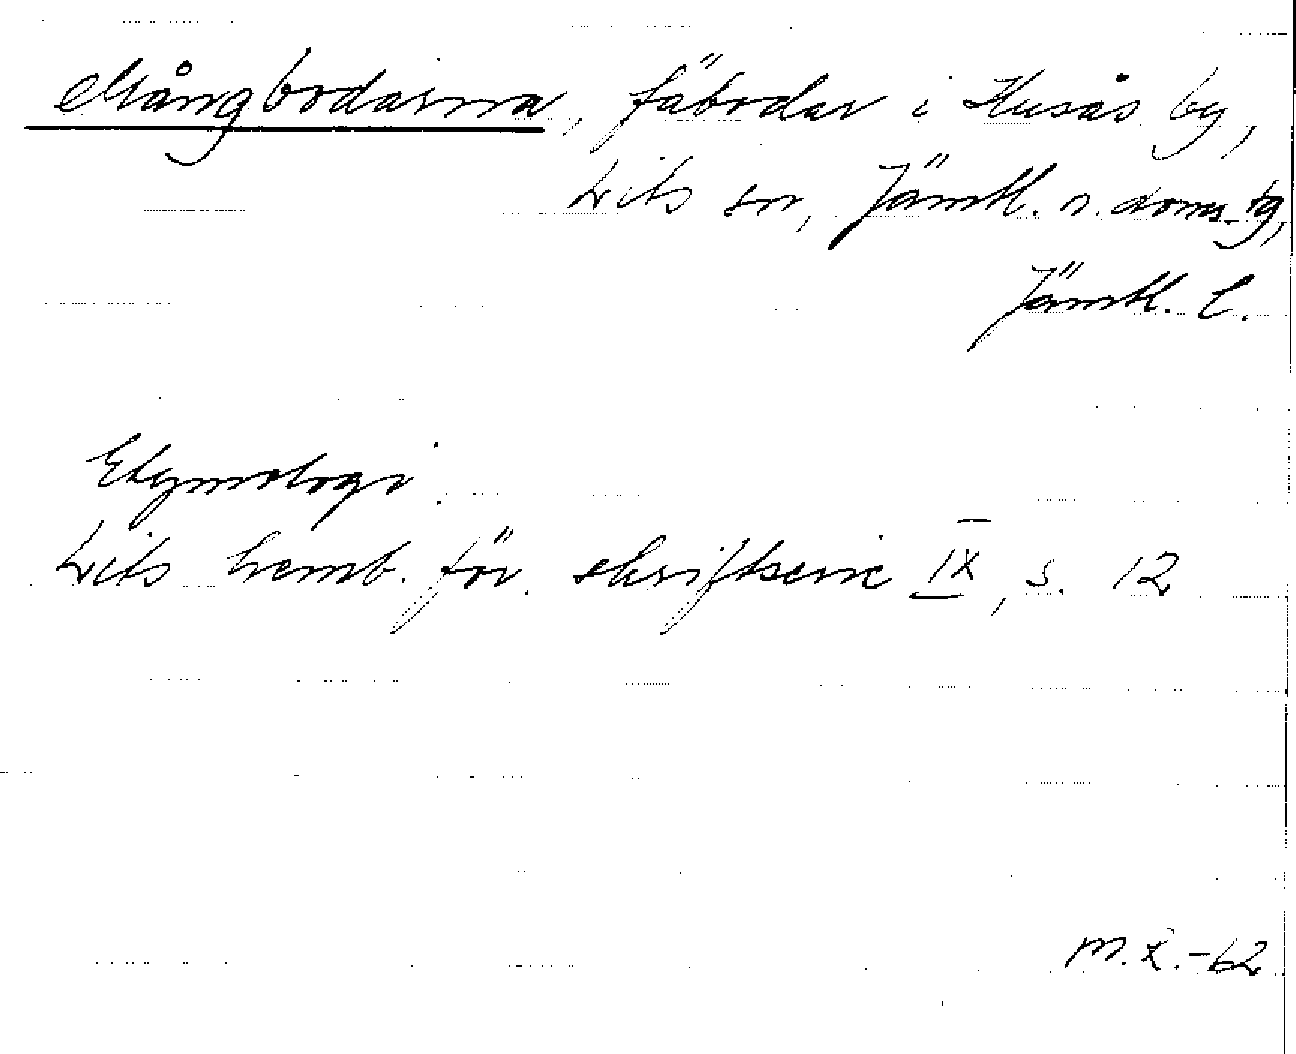 Mångbodarna, fäbodar i Husås by,
Lits sn, Jämtl. n. doms.tg,
Jämtl. l.
Etymologi:
Lits hemb. för. skriftserie IX, s. 12
M.E.-62